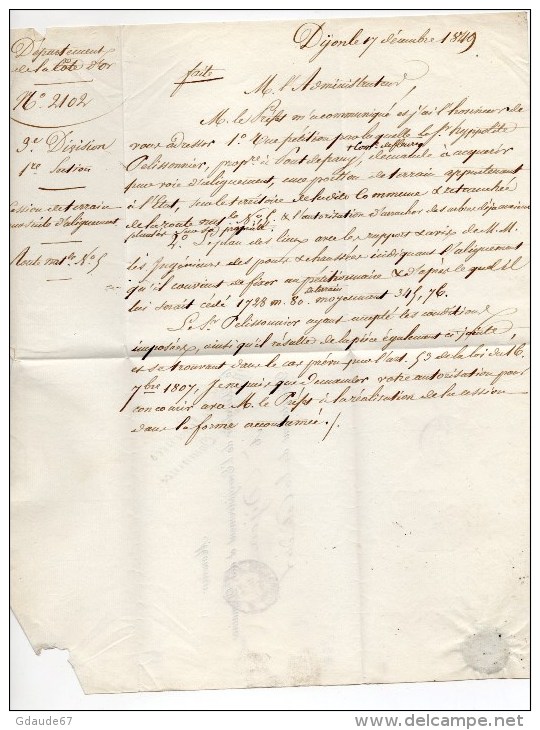 Dijon le 17 décembre 1849
Département
de la Côte d'Or
N° 2102
3e Division
1re Section
Cession de terrain
par suite d'alignement
Route natle N° 5
faite
M. l'Administrateur,
M. le Préfet m'a communiqué et j'ai l'honneur de
vous adresser 1° Une pétition par laquelle le Sr hyppolite
Pelissonnier, propre à demande à acquérir
par voie d'alignement, une portion de terrain appartenant
à l'Etat, sur le territoire de ladite Commune & retranchée
de la route natle N° 5, & l'autorisation d'arracher des arbres déjà
plantés sur sa propriété
2° Le plan des lieux avec le rapport & avis de M.M.
les Ingénieurs des ponts & chaussées indiquant l'alignement
qu'il convient de fixer au pétitionnaire & d'après lequel il
lui serait cédé 1728 m. 80 de terrain moyennant 345,76.
Le Sr Pelissonnier ayant accepté les conditions
imposées, ainsi qu'il résulte de la pièce également ci jointe,
et se trouvant dans le cas prévu par l'art. 53 de la loi du 16
7bre 1807, je ne puis que demander votre autorisation pour
concourir avec M. le Préfet à la réalisation de la cession
dans la forme accoutumée ./.
Gdaude67
www.delcampe.net